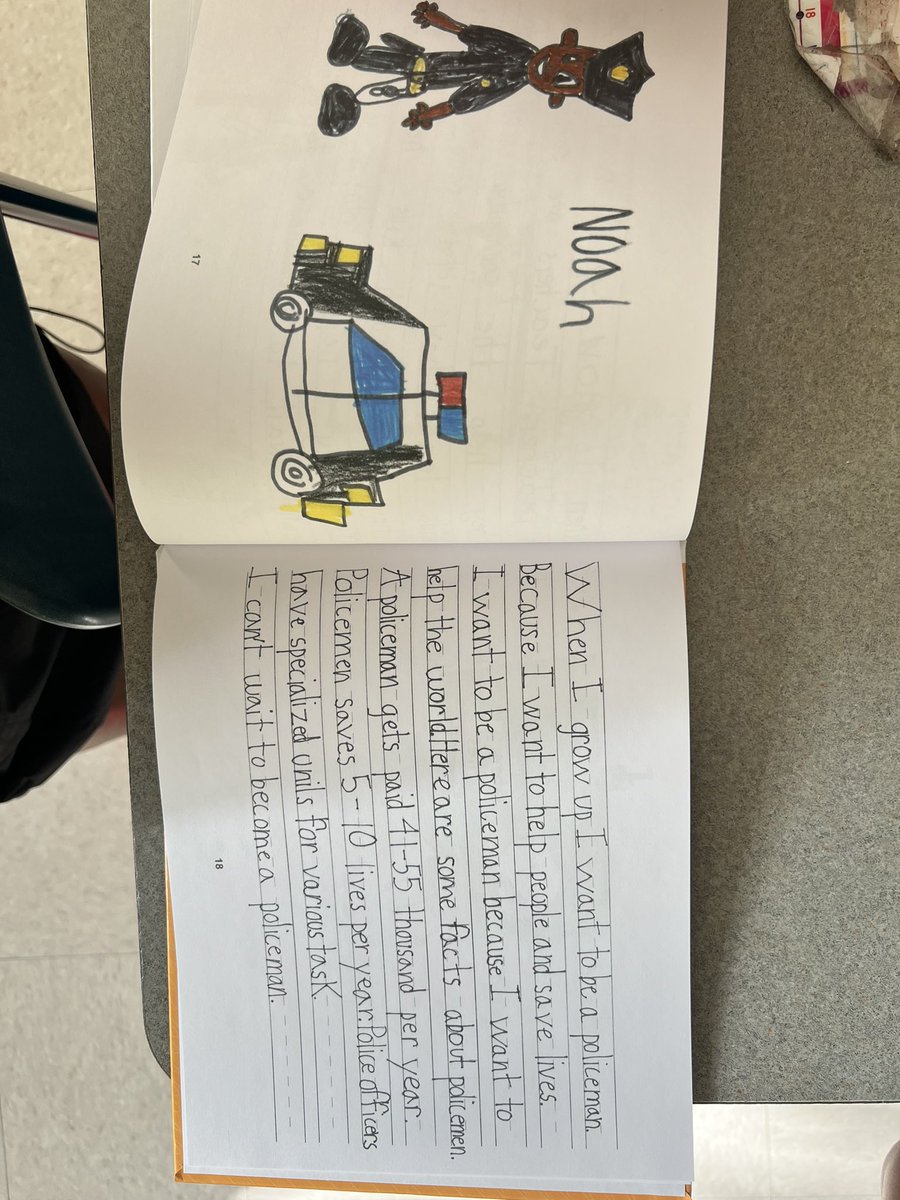 Noah
17
When I grow up I want to be a policeman.
Because I want to help people and save lives.
I want to be a policeman because I want to
help the world Here are some facts about policemen.
A policeman gets paid 41-55 thousand per year.
Policemen saves 5-10 lives per year. Police officers
have specialized units for various task.
I can't wait to become a policeman.
18
18